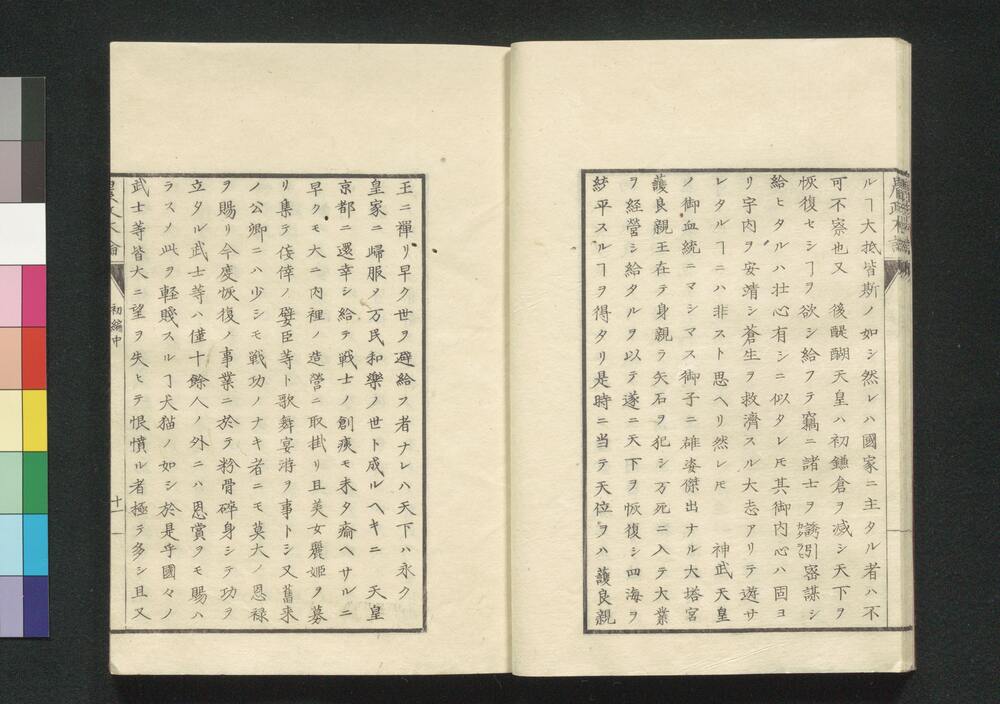 ルヿ大抵皆斯ノ如シ然レハ國家ニ主タル者ハ不
可不察也又　後醍醐天皇ハ初鎌倉ヲ滅シ天下ヲ
恢復セシヿヲ欲シ給フテ竊ニ諸士ヲ誘引密謀シ
給ヒタルハ壮心有シニ似タレ𪜈其御内心ハ固ヨ
リ宇内ヲ安靖シ蒼生ヲ救濟スル大志アリテ遊サ
レタルヿニハ非スト思ヘリ然レ𪜈　神武天皇
ノ御血統ニマシマス御子ニ雄姿傑出ナル大塔宮
護良親王在テ身親ラ矢石ヲ犯シ万死ニ入テ大業
ヲ経營シ給タルヲ以テ遂ニ天下ヲ恢復シ四海ヲ
統平スルヿヲ得タリ是時ニ当テ天位ヲハ護良親
王ニ禪リ早ク世ヲ避給フ者ナレハ天下ハ永ク
皇家ニ歸服メ万民和樂ノ世ト成ルヘキニ　天皇
京都ニ還幸シ給テ戦士ノ創痍モ未タ癒ヘサルニ
早クモ大ニ内裡ノ造營ニ取掛リ且美女麗姬ヲ募
リ集テ佞倖ノ嬖臣等ト歌舞宴游ヲ事トシ又舊来
ノ公卿ニハ少シモ戦功ノナキ者ニモ莫大ノ恩禄
ヲ賜リ今度恢復ノ事業ニ於テ粉骨碎身シテ功ヲ
立タル武士等ハ僅十餘人ノ外ニハ恩賞ヲモ賜ハ
ラスメ此ヲ軽賤スルヿ犬猫ノ如シ於是乎國々ノ
武士等皆大ニ望ヲ失ヒテ恨憤ル者極テ多シ且又
初編中
十一